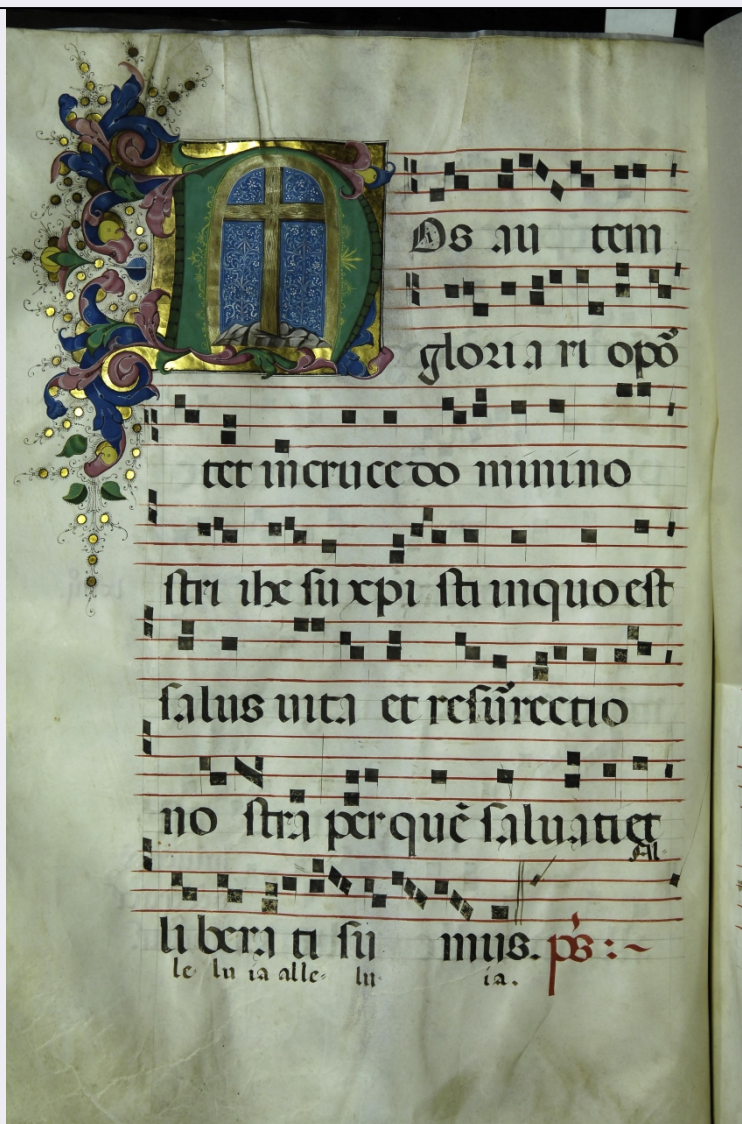 NOs au tem
gloria ri opō
tet in cruce do mini no
stri ihe su xpi sti in quo est
salus uita et resūrectio
no stra per quē saluati et
Al
li bera ti su mus. ps :~
le lu ia alle- lu ia.